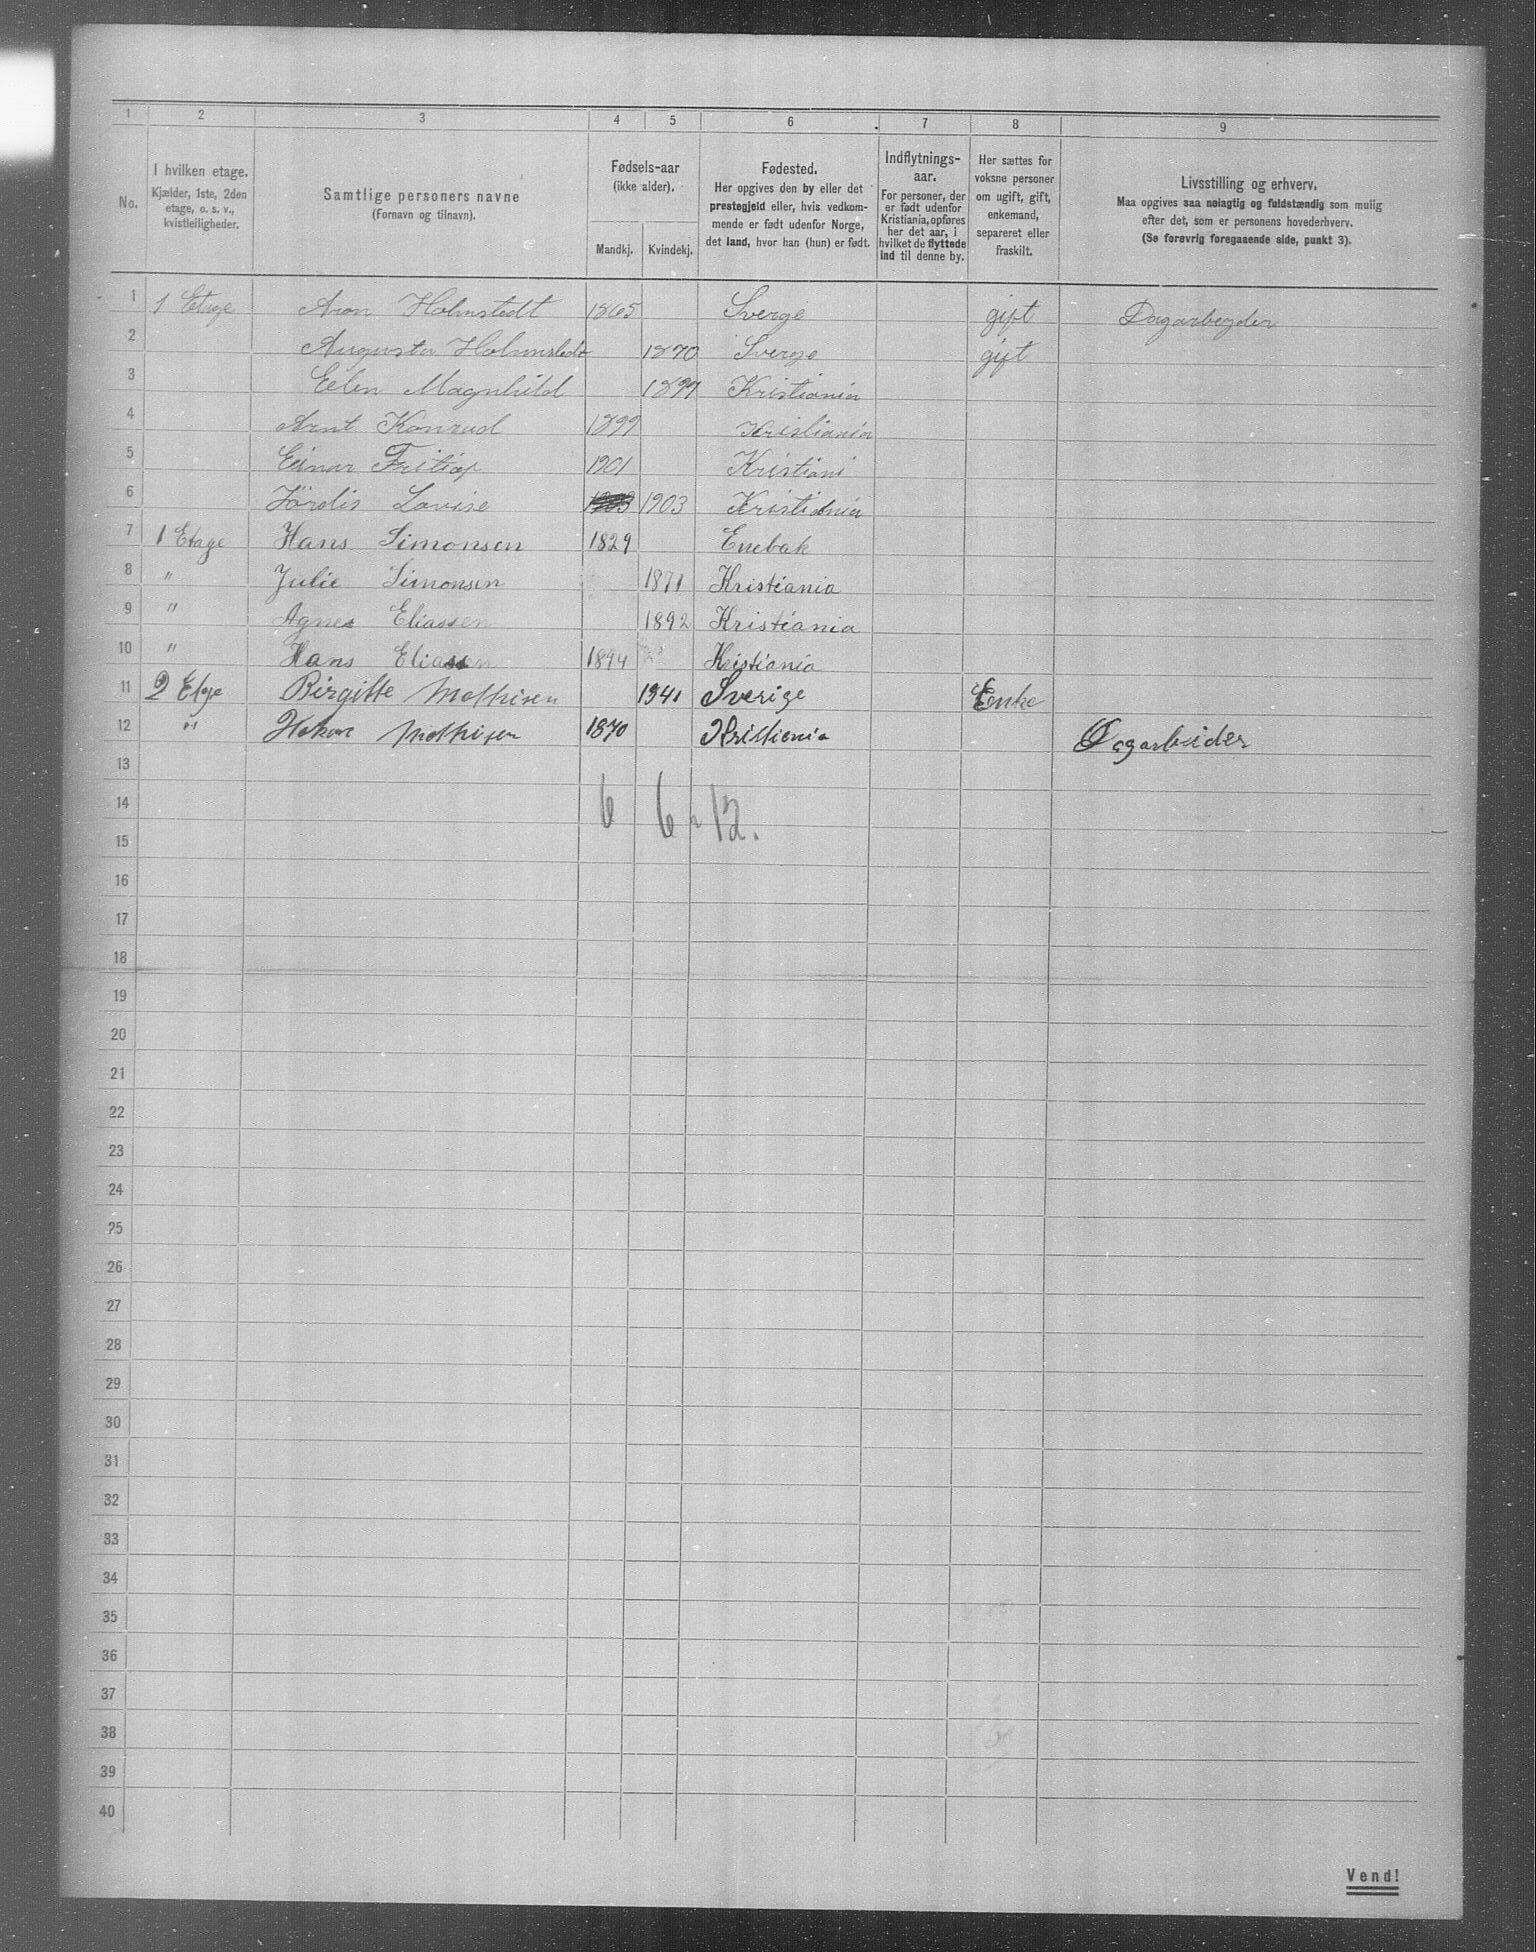 1 2 3 4 5 6 7 8 9
No.
I hvilken etage.
Kjælder, 1ste, 2den
etage, o. s. v.,
kvistleiligheder.
Samtlige personers navne
(Fornavn og tilnavn).
Fødsels-aar
(ikke alder).
Mandkj. Kvindekj.
Fødested.
Her opgives den by eller det
prestegjeld eller, hvis vedkom-
mende er født udenfor Norge,
det land, hvor han (hun) er født.
Indflytnings-
aar.
For personer, der
er født udenfor
Kristiania, opføres
her det aar, i
hvilket de flyttede
ind til denne by.
Her sættes for
voksne personer
om ugift, gift,
enkemand,
separeret eller
fraskilt.
Livsstilling og erhverv.
Maa opgives saa nøiagtig og fuldstændig som mulig
efter det, som er personens hovederhverv.
(Se forøvrig foregaaende side, punkt 3).
1 1 Etage Aron Holmstedt 1865 Sverge gift Dagarbeyder
2 Augusta Holmstedt 1870 Sverge gift
3 Eelen Magnhild 1897 Kristiania
4 Arnt Konrad 1899 Kristiania
5 Einar Fritiof 1901 Kristiani
6 Jördis Lovise 1903 1903 Kristiania
7 1 Etage Hans Simonsen 1829 Enebak
8 " Julie Simonsen 1871 Kristiania
9 " Agnes Eliassen 1892 Kristiania
10 " Hans Eliassen 1894 Kristiania
11 2 Etge Birgitte Mathisen 1941 Sverige Eenke
12 " Hakon Mathisen 1870 Kristiania Dagarbeider
13
14 6 6 12.
15
16
17
18
19
20
21
22
23
24
25
26
27
28
29
30
31
32
33
34
35
36
37
38
39
40
Vend!